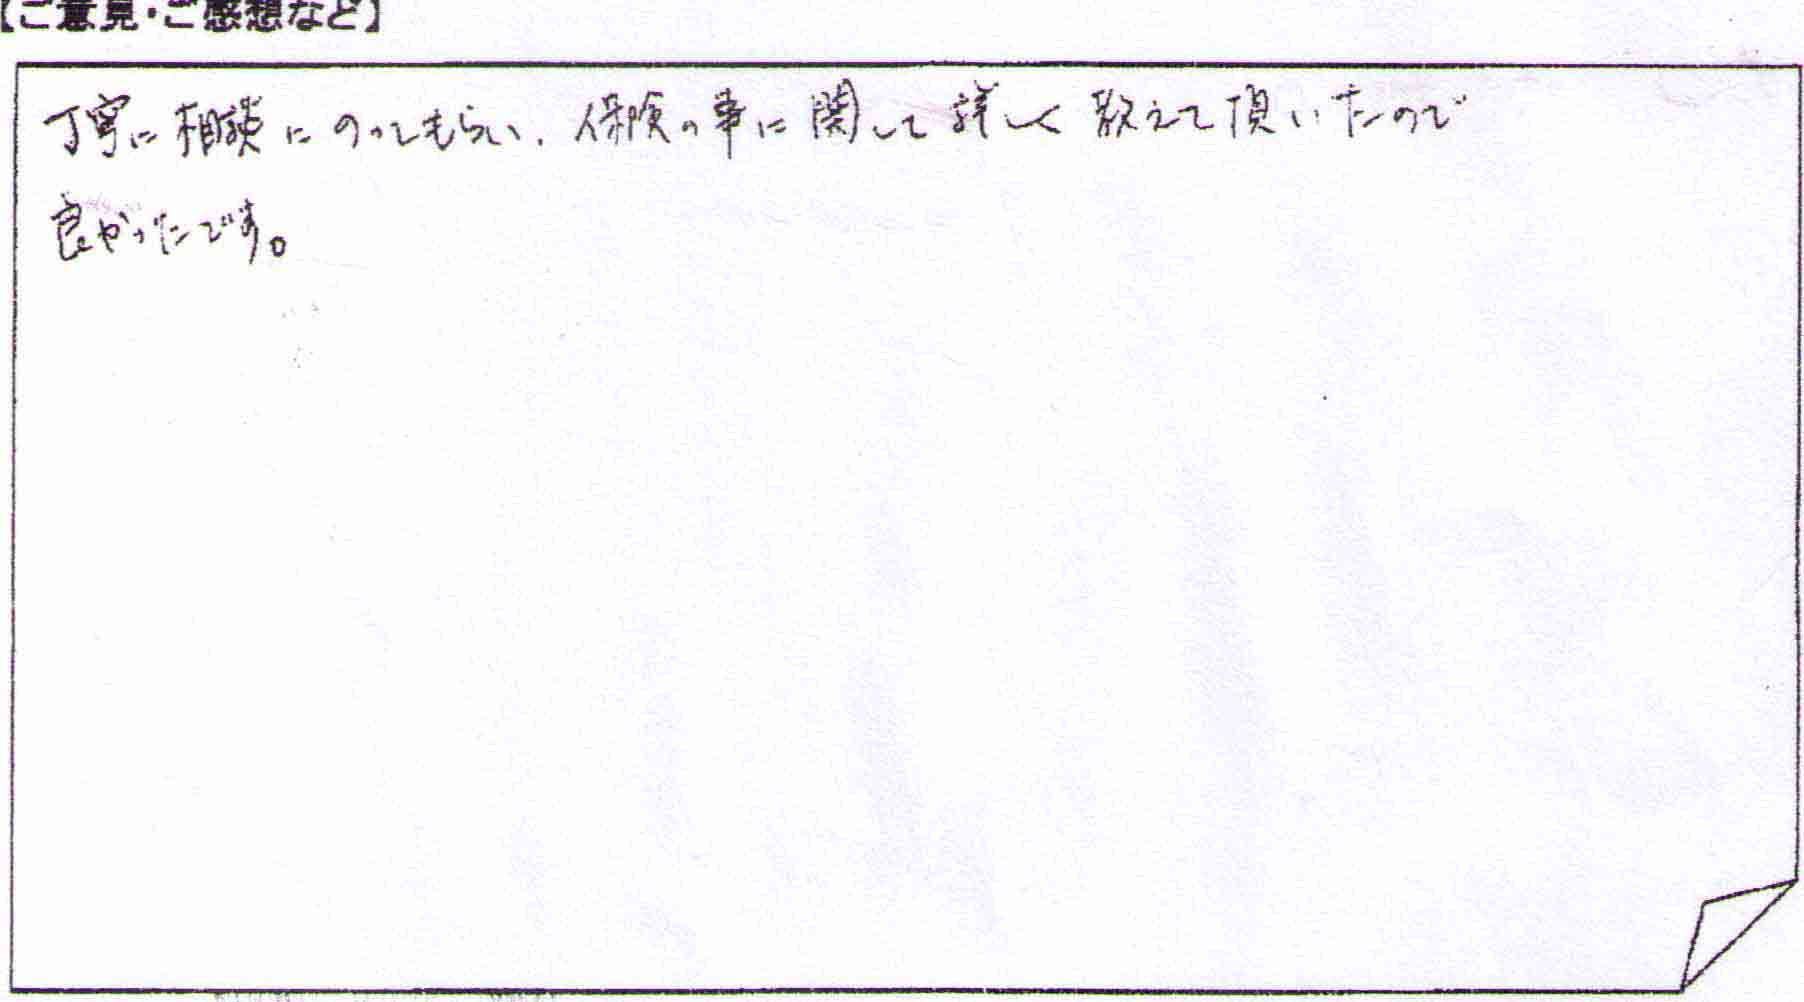 【ご意見・ご感想など】
丁寧に相談にのってもらい、保険の事に関して詳しく教えて頂いたので
良かったです。